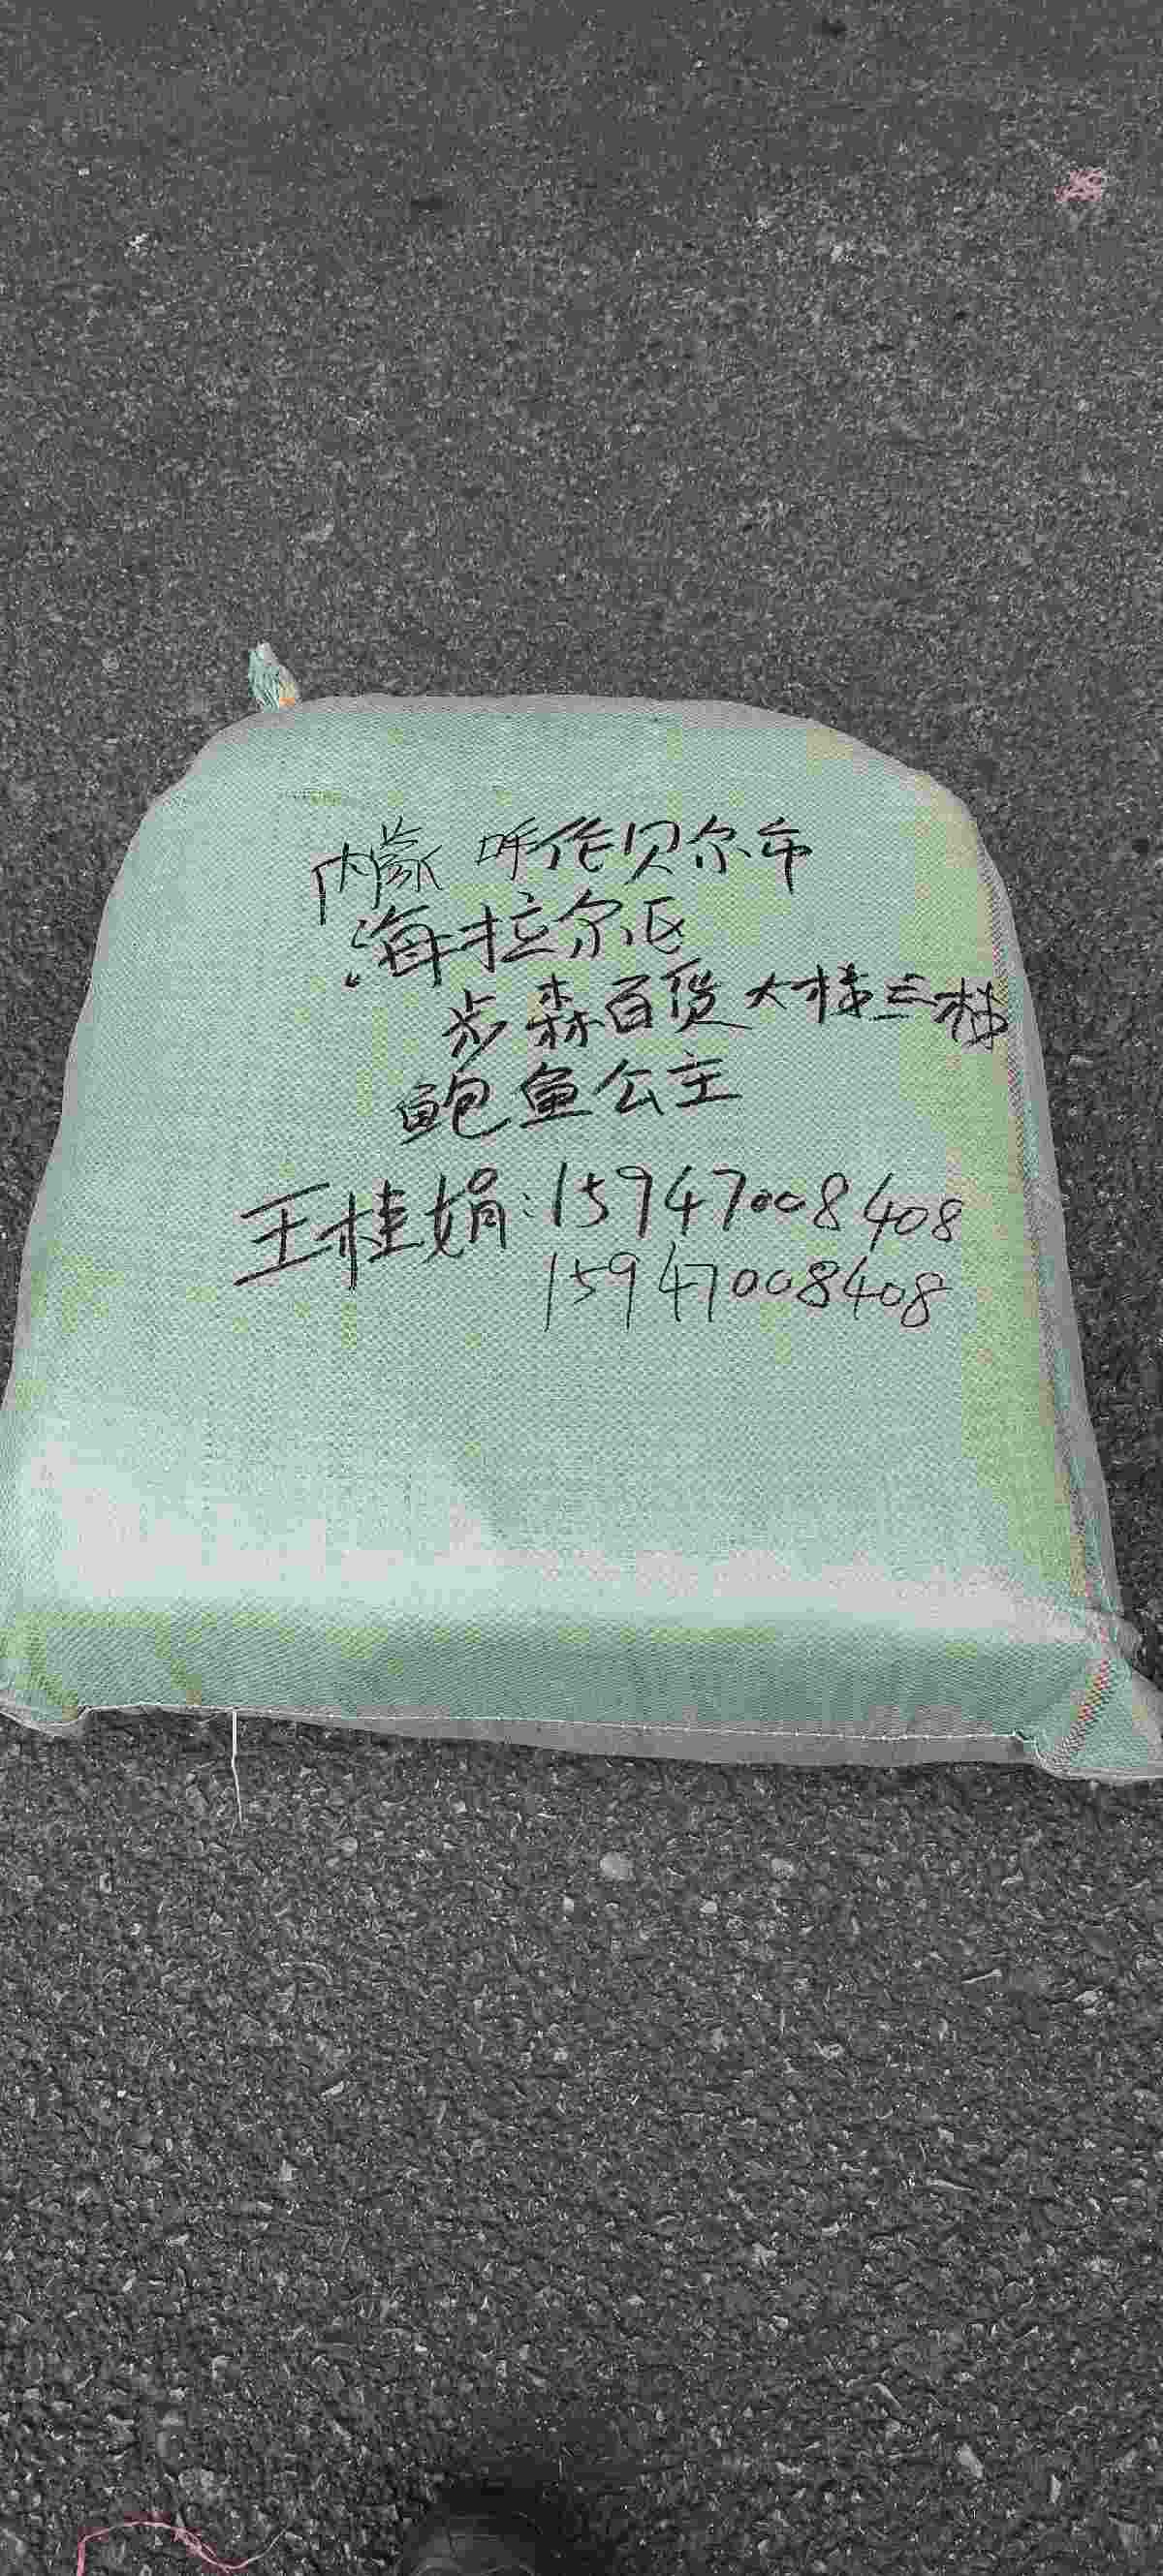 内蒙 呼伦贝尔市
海拉尔区
步森百货大楼三楼
鲍鱼公主
王桂娟:15947008408
15947008408